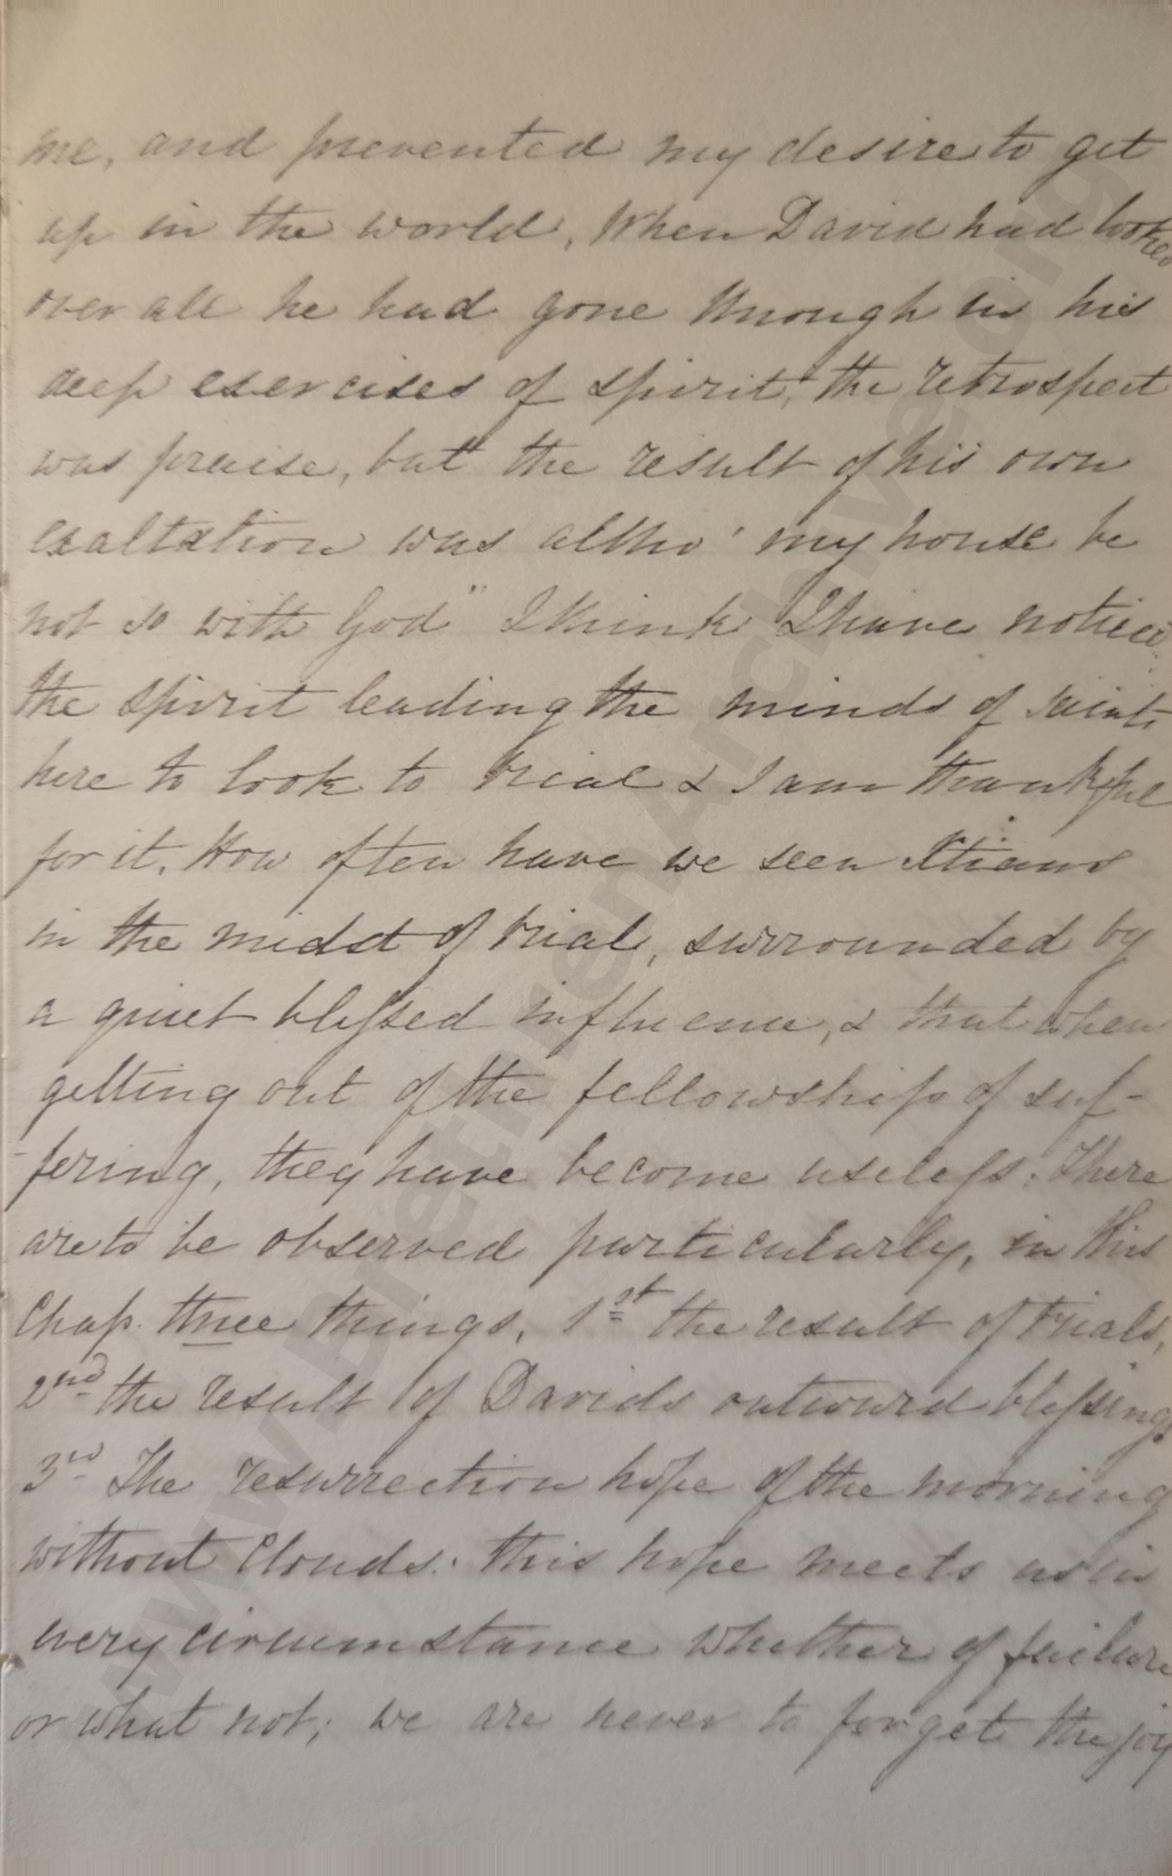 me, and prevented my desire to get
up in the world, When David had looked
over all he had gone through in his
deep exercises of spirit, the retrospect
was praise, but the result of his own
exaltation was altho' my house be
not so with God" I think I have notice
the spirit leading the minds of saints
here to look to trial & I am thankful
for it. How often have we seen Xtians
in the midst of trial, surrounded by
a quiet blessed influence, & that when
getting out of the fellowship of suf-
fering, they have become useless: There
are to be observed particularly, in this
Chap. three things, 1st the result of trials,
2nd the result of Davids outward blessings
3rd The resurrection hope of the morning
without Clouds: this hope meets us in
every circumstance whether of failure
or what not; we are never to forget the joy
www.BrethrenArchive.org